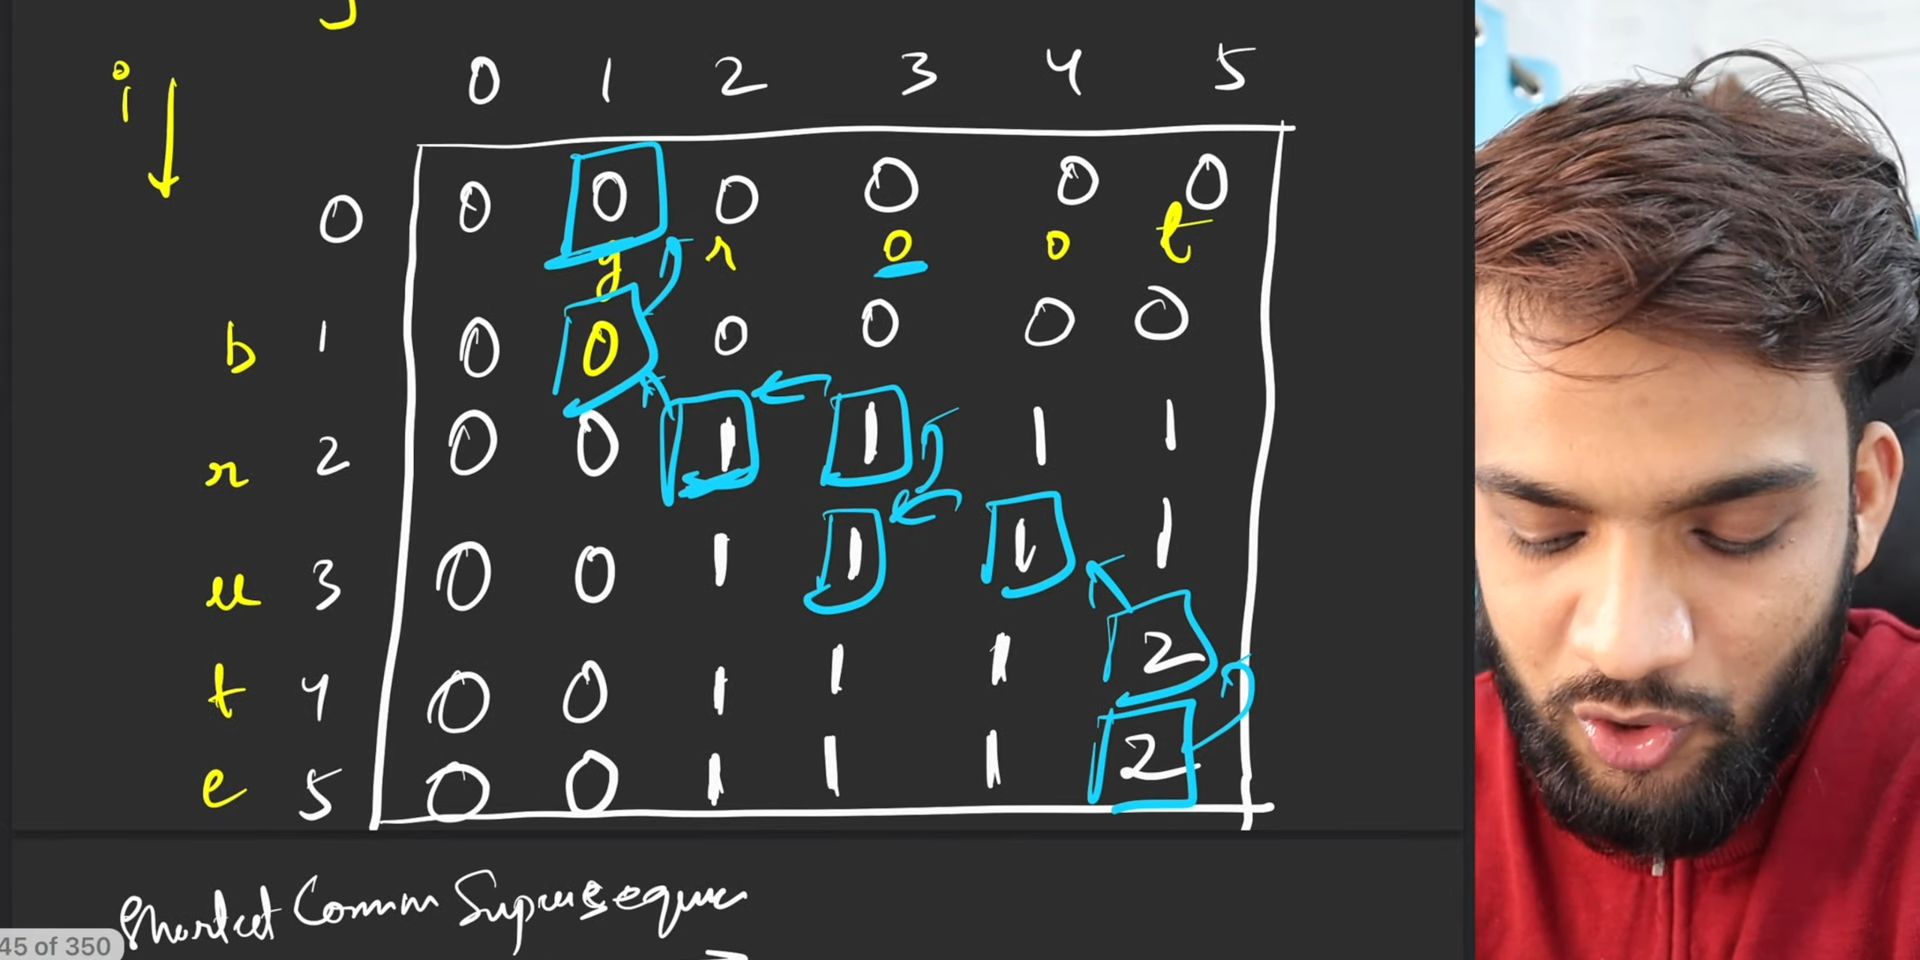 j
i
0 1 2 3 4 5
0 0 0 0 0 0 0
g r o o t
b 1 0 0 0 0 0 0
r 2 0 0 1 1 1 1
u 3 0 0 1 1 1 1
t 4 0 0 1 1 1 2
e 5 0 0 1 1 1 2
Shortest Comm Supersequ
45 of 350